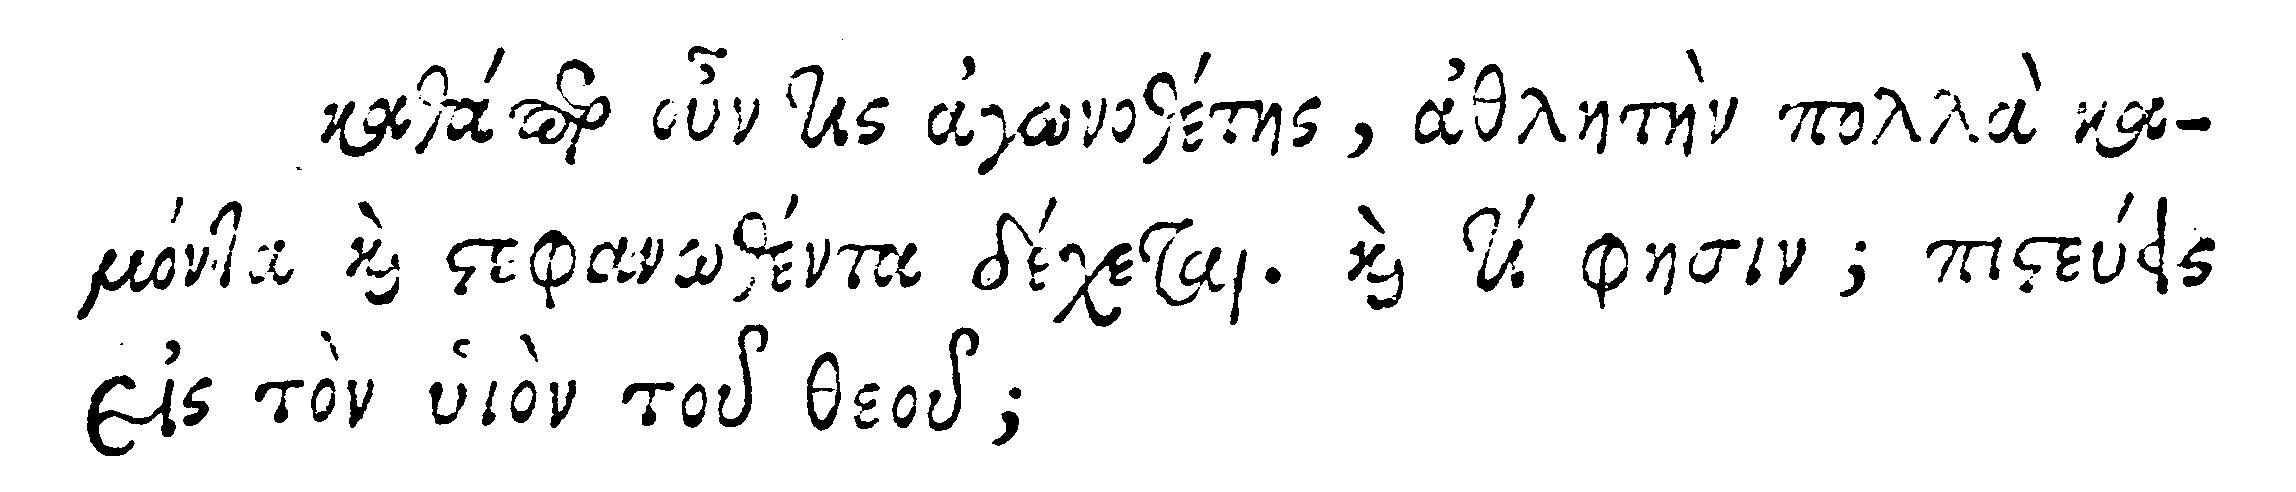 καθάπερ οὖν τις ἀγωνοθέτης, ἀθλητὴν πολλὰ κα-
μόντα καὶ στεφανωθέντα δέχεται. καὶ τί φησιν; πιστεύεις
εἰς τὸν ὑιὸν τοῦ θεοῦ;